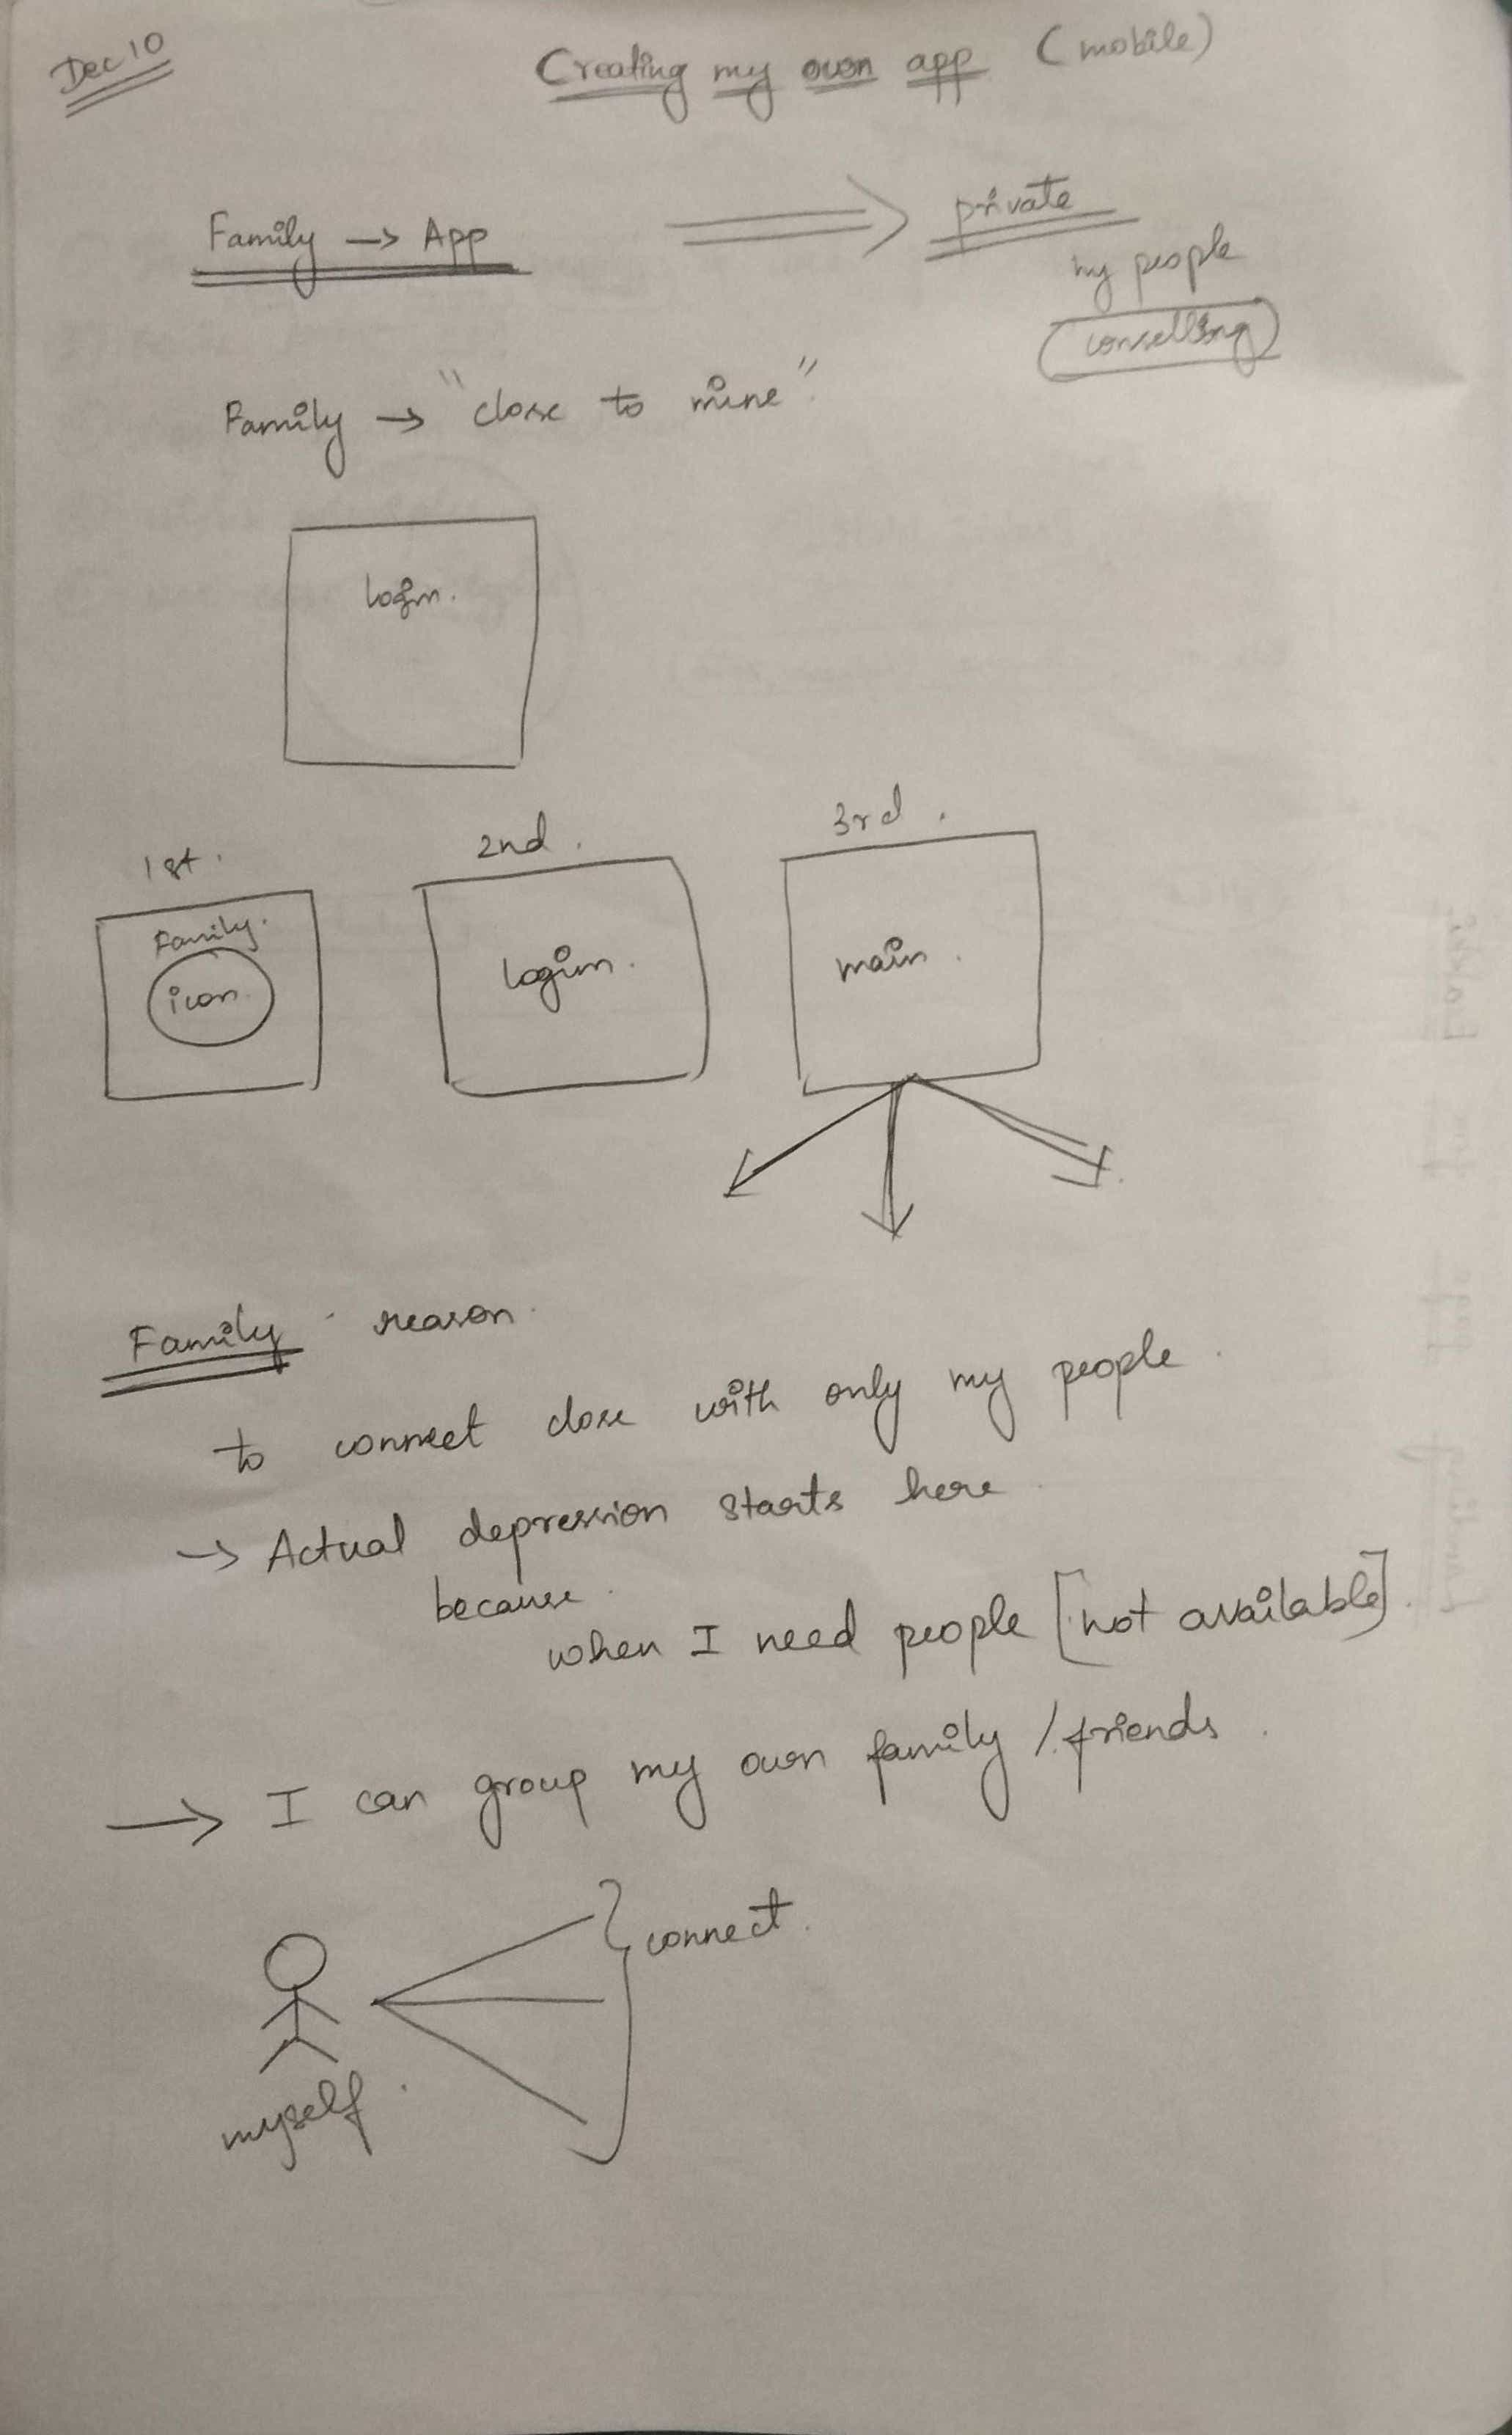 Dec 10
Creating my own app (mobile)
Family → App ⇒ private
my people
conselling
Family → "close to mine"
login.
1st.
2nd.
3rd.
Family.
icon.
login.
main.
Family reason.
to connect close with only my people.
→ Actual depression starts here.
because.
when I need people [not available].
→ I can group my own family / friends.
connect.
myself.